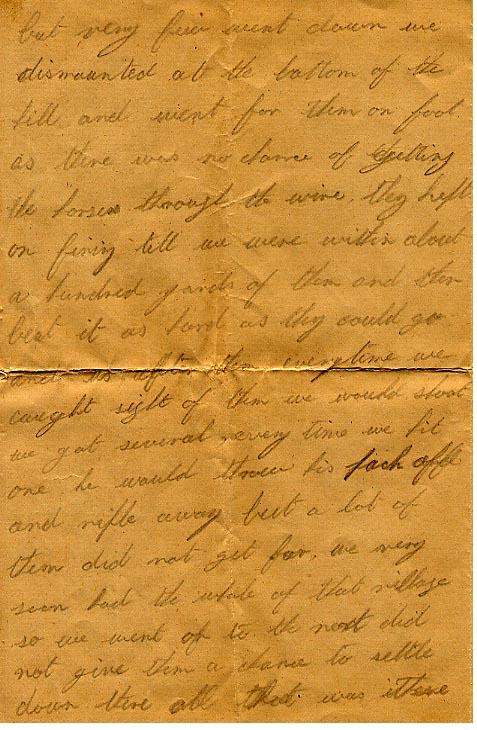 but very few went down we
dismounted at the bottom of the
hill and went for them on foot
as there was no chance of getting
the horses through the wire, they kept
on firing till we were within about
a hundred yards of them and then
beat it as hard as they could go
and us after them everytime we
caught sight of them we would shoot
we got several, every time we hit
one he would throw his pack off
and rifle away but a lot of
them did not get far, we very
soon had the whole of that village
so we went on to the next did
not give them a chance to settle
down there all that was there